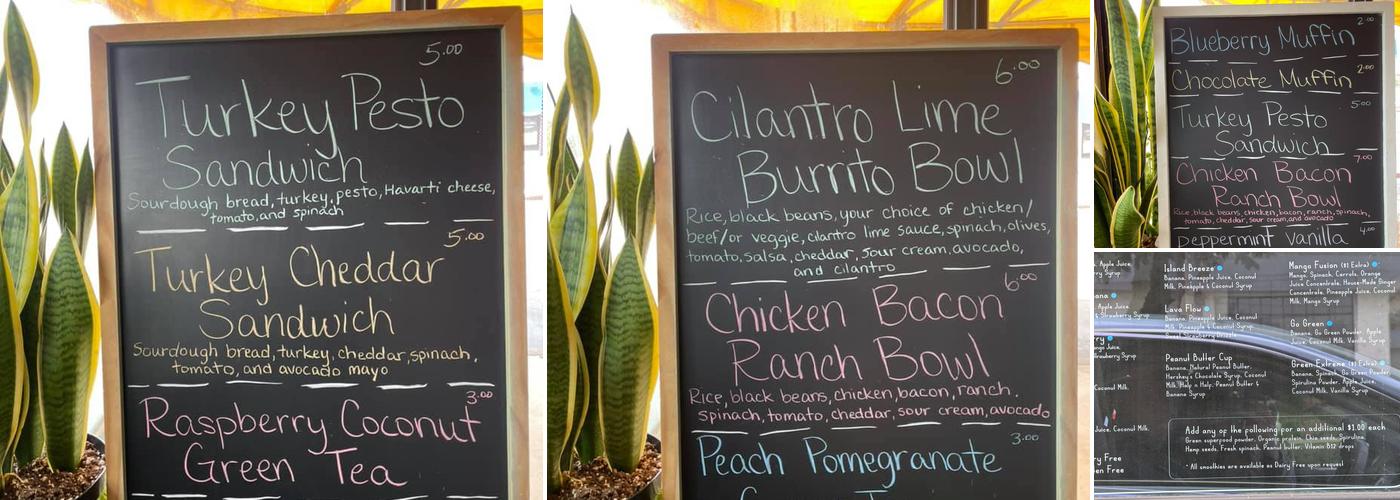 5.00
Turkey Pesto
Sandwich
Sourdough bread, turkey, pesto, Havarti cheese,
tomato, and spinach
5.00
Turkey Cheddar
Sandwich
Sourdough bread, turkey, cheddar, spinach,
tomato, and avocado mayo
3.00
Raspberry Coconut
Green Tea
6.00
Cilantro Lime
Burrito Bowl
Rice, black beans, your choice of chicken/
beef/or veggie, cilantro lime sauce, spinach, olives,
tomato, salsa, cheddar, sour cream, avocado,
and cilantro
6.00
Chicken Bacon
Ranch Bowl
Rice, black beans, chicken, bacon, ranch,
spinach, tomato, cheddar, sour cream, avocado
3.00
Peach Pomegranate
2.00
Blueberry Muffin
2.00
Chocolate Muffin
5.00
Turkey Pesto
Sandwich
7.00
Chicken Bacon
Ranch Bowl
Rice, black beans, chicken, bacon, ranch, spinach,
tomato, cheddar, sour cream, and avocado
4.00
Peppermint Vanilla
Apple Juice,
Syrup
Apple Juice
& Strawberry Syrup
Juice,
Strawberry Syrup
Coconut Milk,
Coconut Milk,
Island Breeze
Banana, Pineapple Juice, Coconut
Milk, Pineapple & Coconut Syrup
Lava Flow
Banana, Pineapple Juice, Coconut
Milk, Pineapple & Coconut Syrup,
Peanut Butter Cup
Banana, Natural Peanut Butter,
Hershey's Chocolate Syrup, Coconut
Milk, Half n Half, Peanut Butter &
Banana Syrup
Mango Fusion ($1 Extra)
Mango, Spinach, Carrots, Orange
Juice Concentrate, House-Made Ginger
Concentrate, Pineapple Juice, Coconut
Milk, Mango Syrup
Go Green
Banana, Go Green Powder, Apple
Juice, Coconut Milk, Vanilla Syrup
Green Extreme ($1 Extra)
Banana, Spinach, Go Green Powder,
Spirulina Powder, Apple Juice,
Coconut Milk, Vanilla Syrup
Add any of the following for an additional $1.00 each
Green superfood powder, Organic protein, Chia seeds, Spirulina,
Hemp seeds, Fresh spinach, Peanut butter, Vitamin B12 drops
* All smoothies are available as Dairy Free upon request
Free
Free